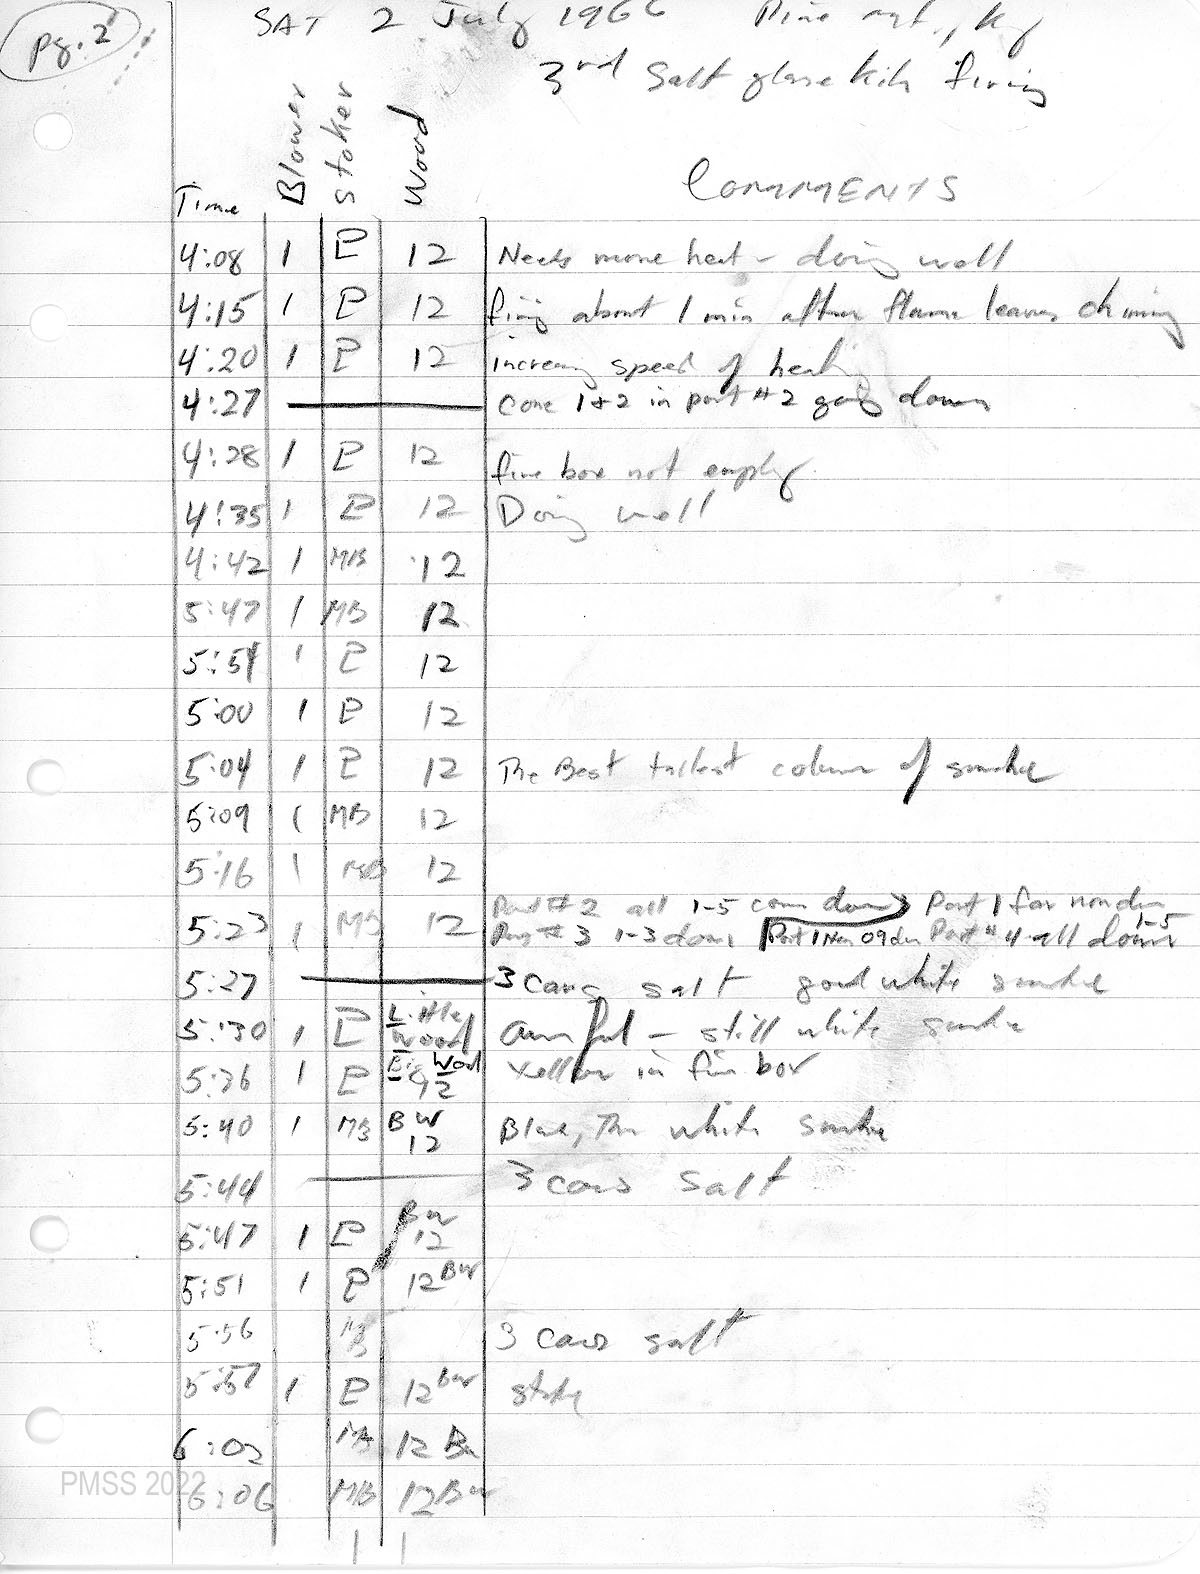 pg. 2
SAT 2 July 1966 Pine mt., Ky
3rd Salt glaze kiln firing
Time Blower Stoker Wood COMMENTS
4:08 1 P 12 Needs more heat - doing well
4:15 1 P 12 firing about 1 min after flame leaves chimny
4:20 1 P 12 increasing speed of heating
4:27 Cone 1+2 in port #2 going down
4:28 1 P 12 fire box not empty
4:35 1 P 12 Doing well
4:42 1 MB 12
5:47 1 MB 12
5:54 1 P 12
5:00 1 P 12
5:04 1 P 12 The Best tallest column of smoke
5:09 1 MB 12
5:16 1 MB 12
5:23 1 MB 12 Port #2 all 1-5 cone down Port 1 far
# 3 1-3 down Port 1 Port # 4 all down 1-5
5:27 3 cans salt good white smoke
5:30 1 P Little Wood - still white smoke
5:36 1 P Big Wood 12 Yellow in fire box
5:40 1 MB BW 12 Blue, Thin white smoke
5:44 3 cans salt
5:47 1 P BW 12
5:51 1 P 12 BW
5:56 MB 3 cans salt
5:57 1 P 12 BW stoke
6:02 MB 12 BW
6:06 MB 12 BW
PMSS 2022